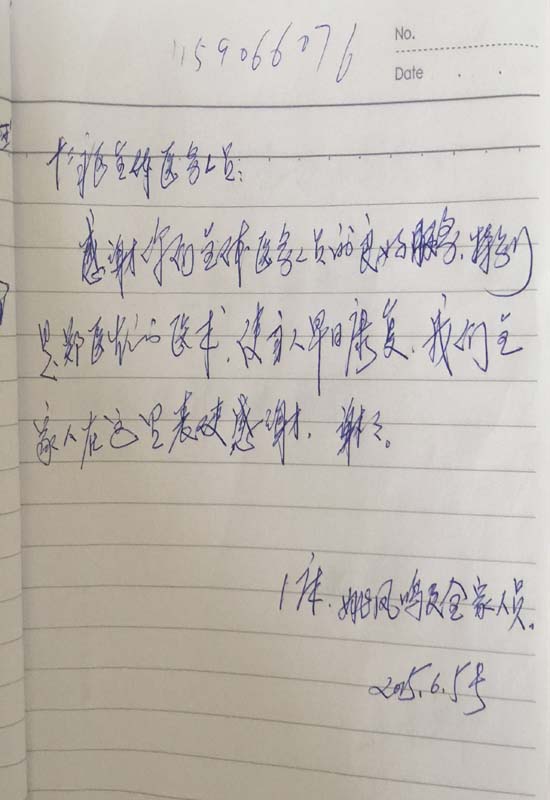 1159066076
No.
Date
全体医务人员:
感谢你们全体医务人员的良好服务,特别
是郑医生的医术,使家人早日康复,我们全
家人在这里表达感谢,谢谢。
1床.姚凤鸣及全家人员.
2015.6.5号